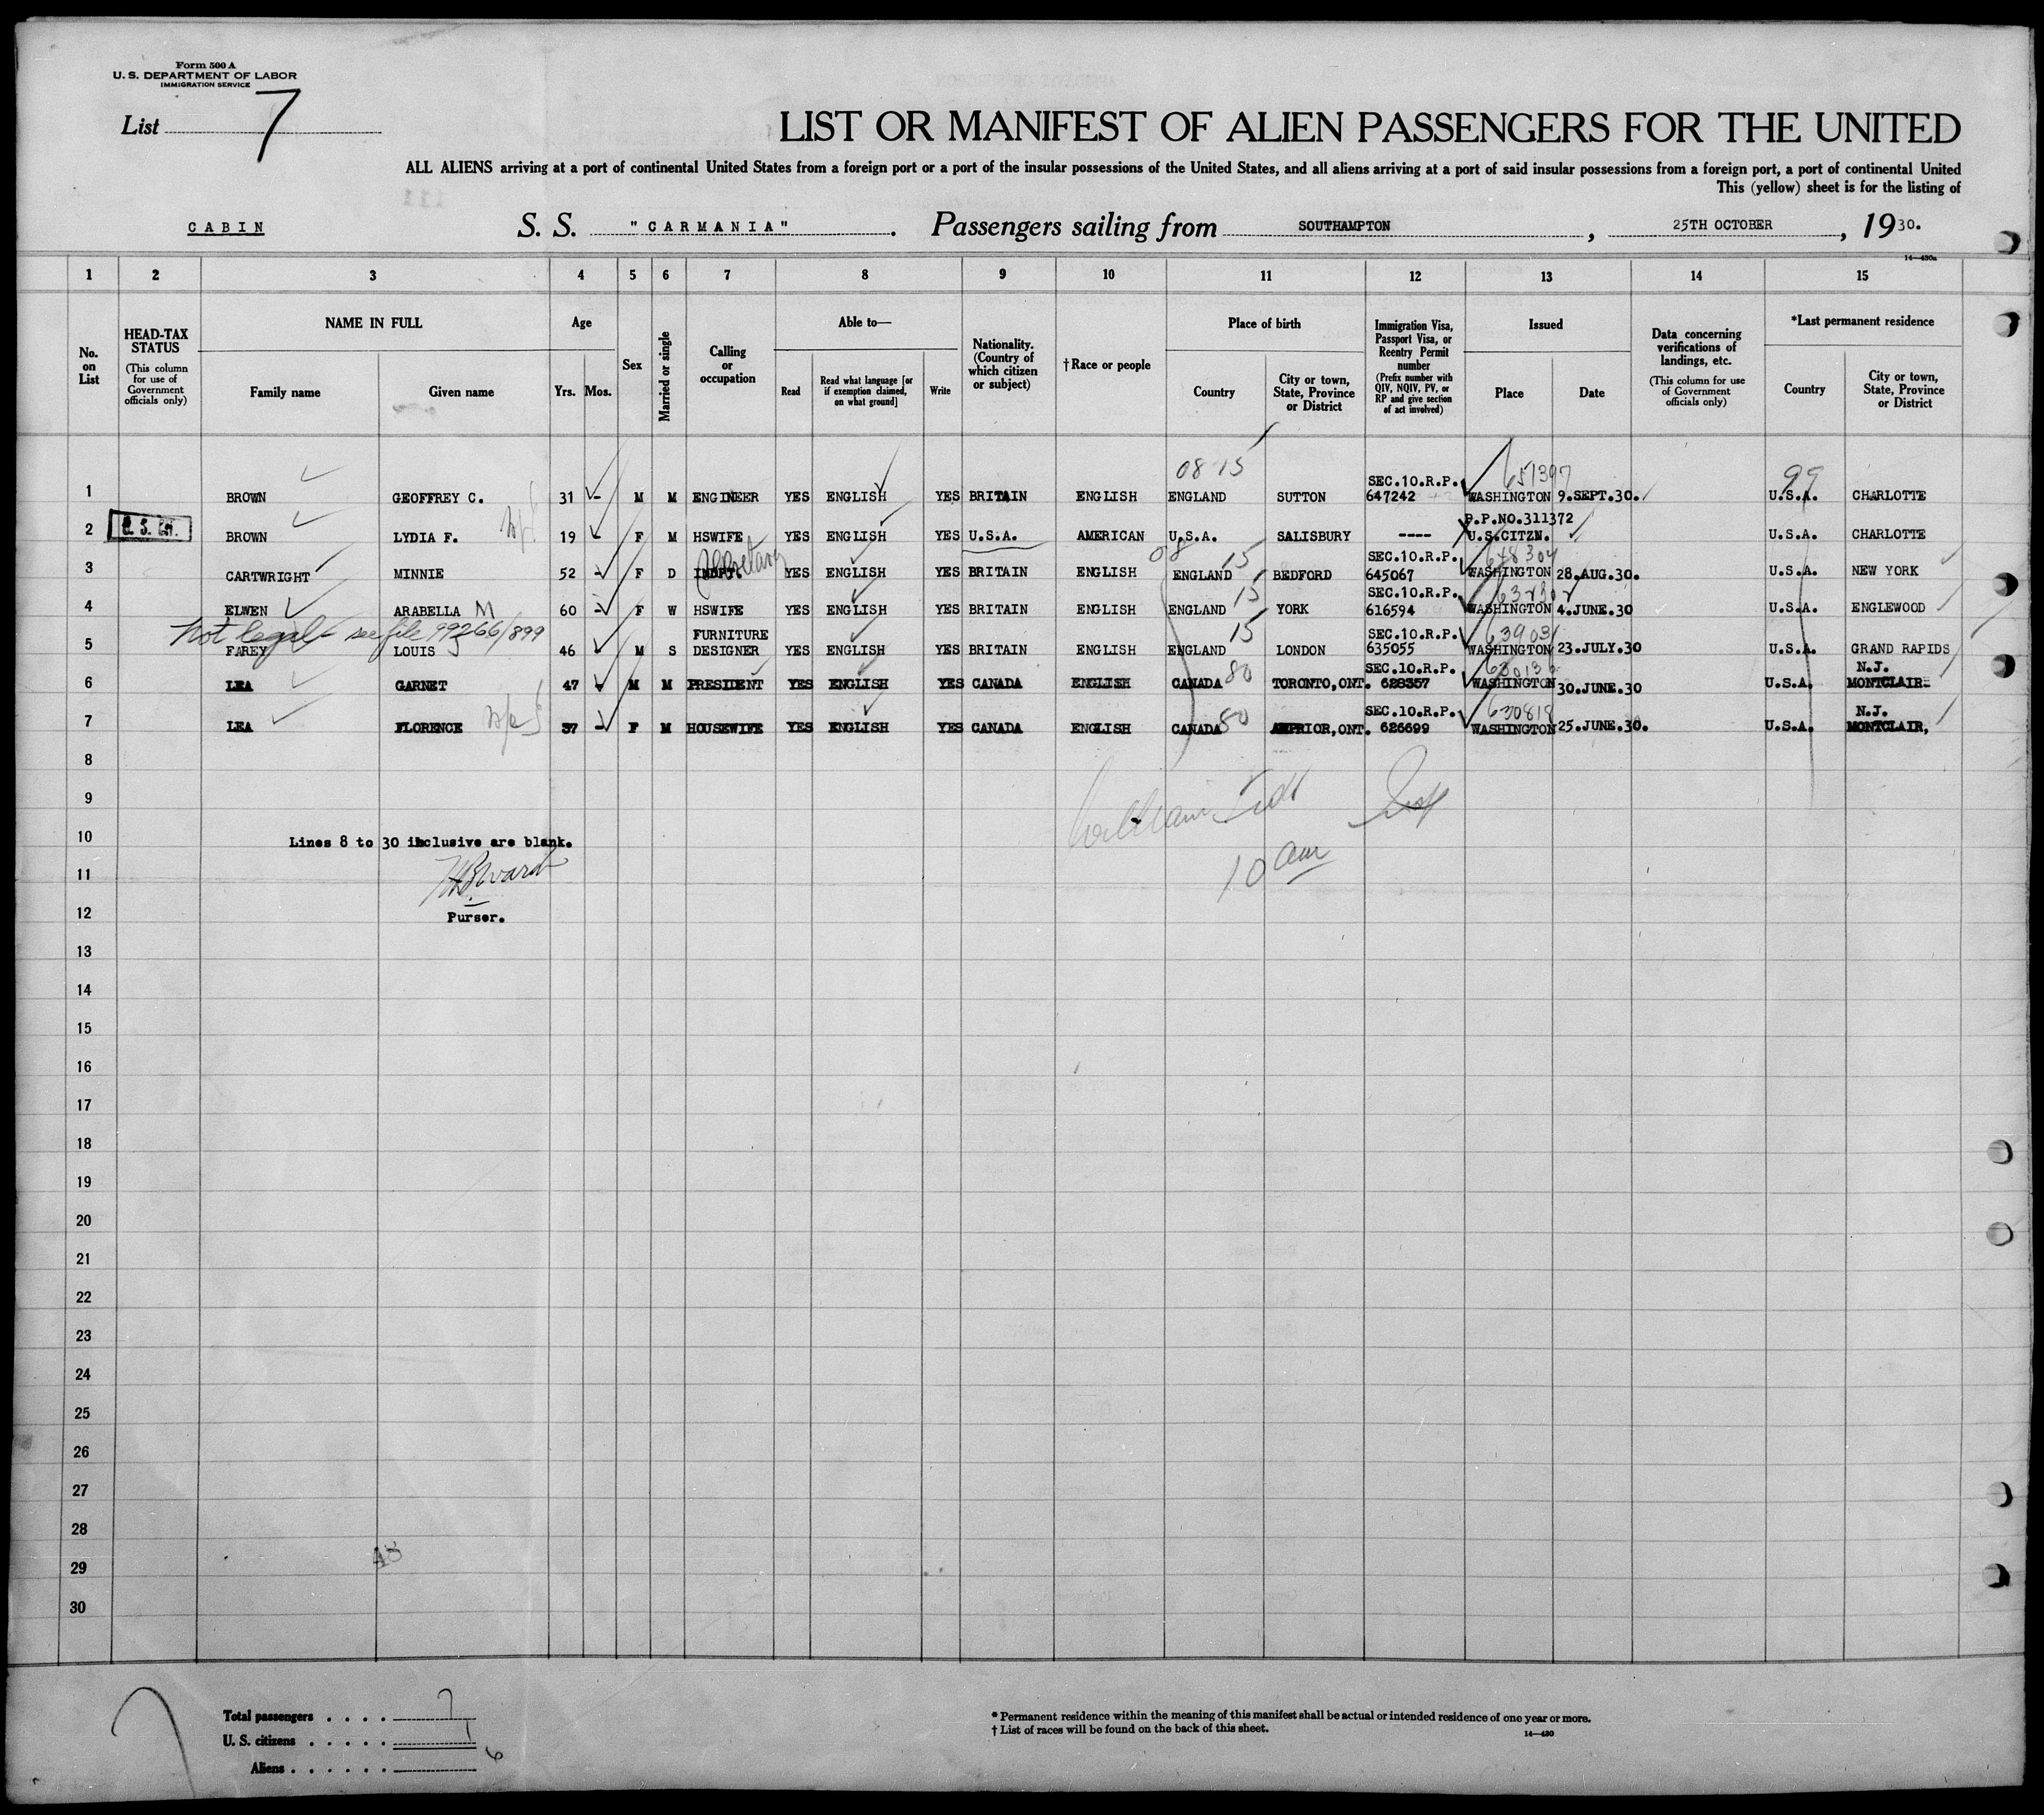 Form 500 A
U. S. DEPARTMENT OF LABOR
IMMIGRATION SERVICE
List 7
LIST OR MANIFEST OF ALIEN PASSENGERS FOR THE UNITED
ALL ALIENS arriving at a port of continental United States from a foreign port or a port of the insular possessions of the United States, and all aliens arriving at a port of said insular possessions from a foreign port, a port of continental United
This (yellow) sheet is for the listing of
CABIN S. S. "CARMANIA". Passengers sailing from SOUTHAMPTON, 25TH OCTOBER, 1930.
14—430a
1 2 3 4 5 6 7 8 9 10 11 12 13 14 15
No. on List
HEAD-TAX STATUS (This column for use of Government officials only)
NAME IN FULL
Family name Given name
Age
Yrs. Mos.
Sex
Married or single
Calling or occupation
Able to—
Read Read what language [or if exemption claimed, on what ground] Write
Nationality. (Country of which citizen or subject)
†Race or people
Place of birth
Country City or town, State, Province or District
Immigration Visa, Passport Visa, or Reentry Permit number (Prefix number with QIV, NQIV, PV, or RP and give section of act involved)
Issued
Place Date
Data concerning verifications of landings, etc. (This column for use of Government officials only)
*Last permanent residence
Country City or town, State, Province or District
08 15 SEC.10.R.P. 651397 99
1 BROWN GEOFFREY C. 31 - M M ENGINEER YES ENGLISH YES BRITAIN ENGLISH ENGLAND SUTTON 647242 WASHINGTON 9.SEPT.30. U.S.A. CHARLOTTE
P.P.NO.311372
2 BROWN LYDIA F. 19 F M HSWIFE YES ENGLISH YES U.S.A. AMERICAN U.S.A. SALISBURY ---- U.S.CITZN. U.S.A. CHARLOTTE
Secretary 08 15 SEC.10.R.P. 648304
3 CARTWRIGHT MINNIE 52 - F D YES ENGLISH YES BRITAIN ENGLISH ENGLAND BEDFORD 645067 WASHINGTON 28.AUG.30. U.S.A. NEW YORK
15 SEC.10.R.P.
4 ELWEN ARABELLA M 60 - F W HSWIFE YES ENGLISH YES BRITAIN ENGLISH ENGLAND YORK 616594 WASHINGTON 4.JUNE.30 U.S.A. ENGLEWOOD
Not legal - see file 99266/899 FURNITURE 15 SEC.10.R.P. 639031
5 FAREY LOUIS J 46 - M S DESIGNER YES ENGLISH YES BRITAIN ENGLISH ENGLAND LONDON 635055 WASHINGTON 23.JULY.30 U.S.A. GRAND RAPIDS
80 SEC.10.R.P. N.J.
6 LEA GARNET 47 - M M PRESIDENT YES ENGLISH YES CANADA ENGLISH CANADA TORONTO,ONT. 628357 WASHINGTON 30.JUNE.30 U.S.A. MONTCLAIR
80 SEC.10.R.P. 630818 N.J.
7 LEA FLORENCE 37 - F M HOUSEWIFE YES ENGLISH YES CANADA ENGLISH CANADA ARPRIOR,ONT. 626699 WASHINGTON 25.JUNE.30. U.S.A. MONTCLAIR,
8
9
10 Lines 8 to 30 inclusive are blank.
10 am
11
12 Purser.
13
14
15
16
17
18
19
20
21
22
23
24
25
26
27
28
48
29
30
Total passengers . . . . 7
U. S. citizens . . . . . 1
Aliens . . . . . . 6
* Permanent residence within the meaning of this manifest shall be actual or intended residence of one year or more.
† List of races will be found on the back of this sheet.
14—430